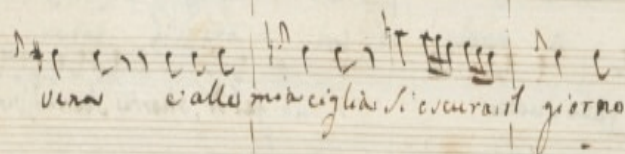 vena e alle mie ciglia si oscura il giorno